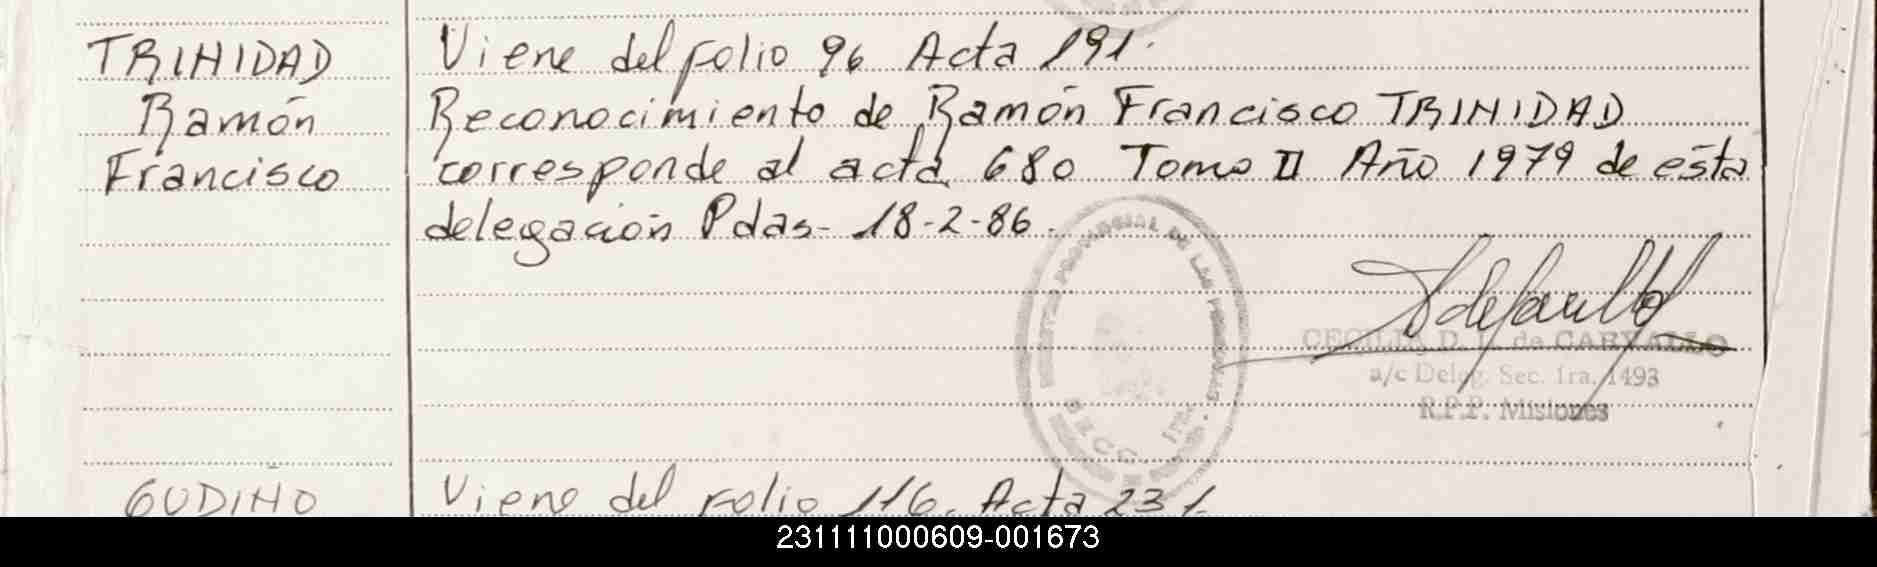 TRINIDAD
Ramón
Francisco
Viene del folio 96 Acta 191.
Reconocimiento de Ramón Francisco TRINIDAD
corresponde al acta 680 Tomo II Año 1979 de esta
delegación Pdas- 18-2-86.
PROVINCIAL DE LAS PERSONAS
SECC. 1ra.
CECILIA D. de CARVALLO
a/c Deleg. Sec. 1ra. 1493
R.P.P. Misiones
GUDIÑO
Viene del Folio 116. Acta 231.
231111000609-001673